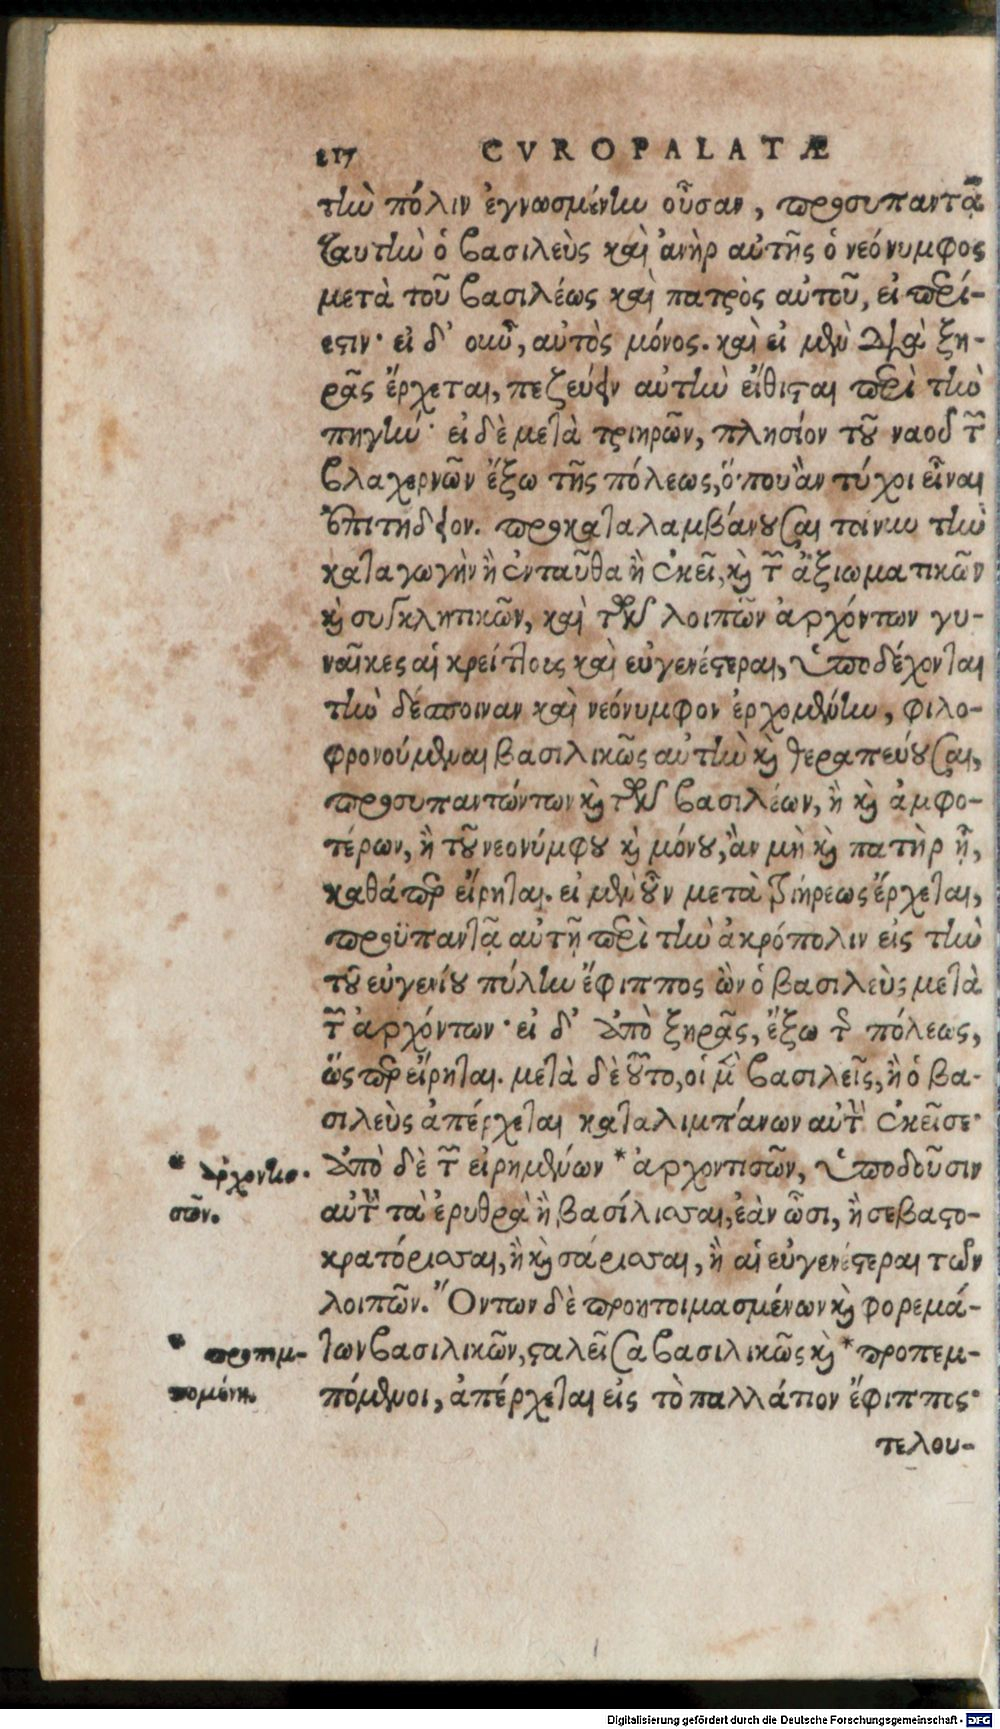 217 CVROPALATÆ
τὴν πόλιν ἐγνωσμένην οὖσαν, προσυπαντᾷ
ταύτην ὁ βασιλεὺς καὶ ἀνὴρ αὐτῆς ὁ νεόνυμφος
μετὰ τοῦ βασιλέως καὶ πατρὸς αὐτοῦ, εἰ περί-
εστιν· εἰ δ' οὖν, αὐτὸς μόνος. καὶ εἰ μὲν διὰ ξη-
ρᾶς ἔρχεται, πεζεύειν αὐτὴν εἴθισται περὶ τὴν
πηγήν· εἰ δὲ μετὰ τριηρῶν, πλησίον τοῦ ναοῦ τῶν
βλαχερνῶν ἔξω τῆς πόλεως, ὅπου ἂν τύχοι εἶναι
ἐπιτήδειον. προκαταλαμβάνουσαι τοίνυν τὴν
καταγωγὴν ἢ ἐνταῦθα ἢ ἐκεῖ, καὶ τῶν ἀξιωματικῶν
καὶ συγκλητικῶν, καὶ τῶν λοιπῶν ἀρχόντων γυ-
ναῖκες αἱ κρείττους καὶ εὐγενέστεραι, ὑποδέχονται
τὴν δέσποιναν καὶ νεόνυμφον ἐρχομένην, φιλο-
φρονούμεναι βασιλικῶς αὐτὴν καὶ θεραπεύουσαι,
προσυπαντώντων καὶ τῶν βασιλέων, ἢ καὶ ἀμφο-
τέρων, ἢ τοῦ νεονύμφου καὶ μόνου, ἂν μὴ καὶ πατὴρ ᾖ,
καθάπερ εἴρηται. εἰ μὲν οὖν μετὰ τριήρεως ἔρχεται,
προϋπαντᾷ αὐτῇ περὶ τὴν ἀκρόπολιν εἰς τὴν
τοῦ εὐγενίου πύλην ἔφιππος ὢν ὁ βασιλεὺς μετὰ
τῶν ἀρχόντων· εἰ δ' ἀπὸ ξηρᾶς, ἔξω τῆς πόλεως,
ὥσπερ εἴρηται. μετὰ δὲ τοῦτο, οἱ μὲν βασιλεῖς, ἢ ὁ βα-
σιλεὺς ἀπέρχεται καταλιμπάνων αὐτὴν ἐκεῖσε·
ἀπὸ δὲ τῶν εἰρημένων * ἀρχοντισῶν, ὑποδοῦσιν
αὐτὴν τὰ ἐρυθρὰ ἢ βασίλισσαι, ἐὰν ὦσι, ἢ σεβαστο-
κρατόρισσαι, ἢ καισάρισσαι, ἢ αἱ εὐγενέστεραι τῶν
λοιπῶν. Ὄντων δὲ προητοιμασμένων καὶ φορεμά-
των βασιλικῶν, σταλεῖσα βασιλικῶς καὶ * προπεμ-
πόμενοι, ἀπέρχεται εἰς τὸ παλλάτιον ἔφιππος·
τελου-
* ἀρχοντισ-
σῶν.
* προπεμ-
πομένη.